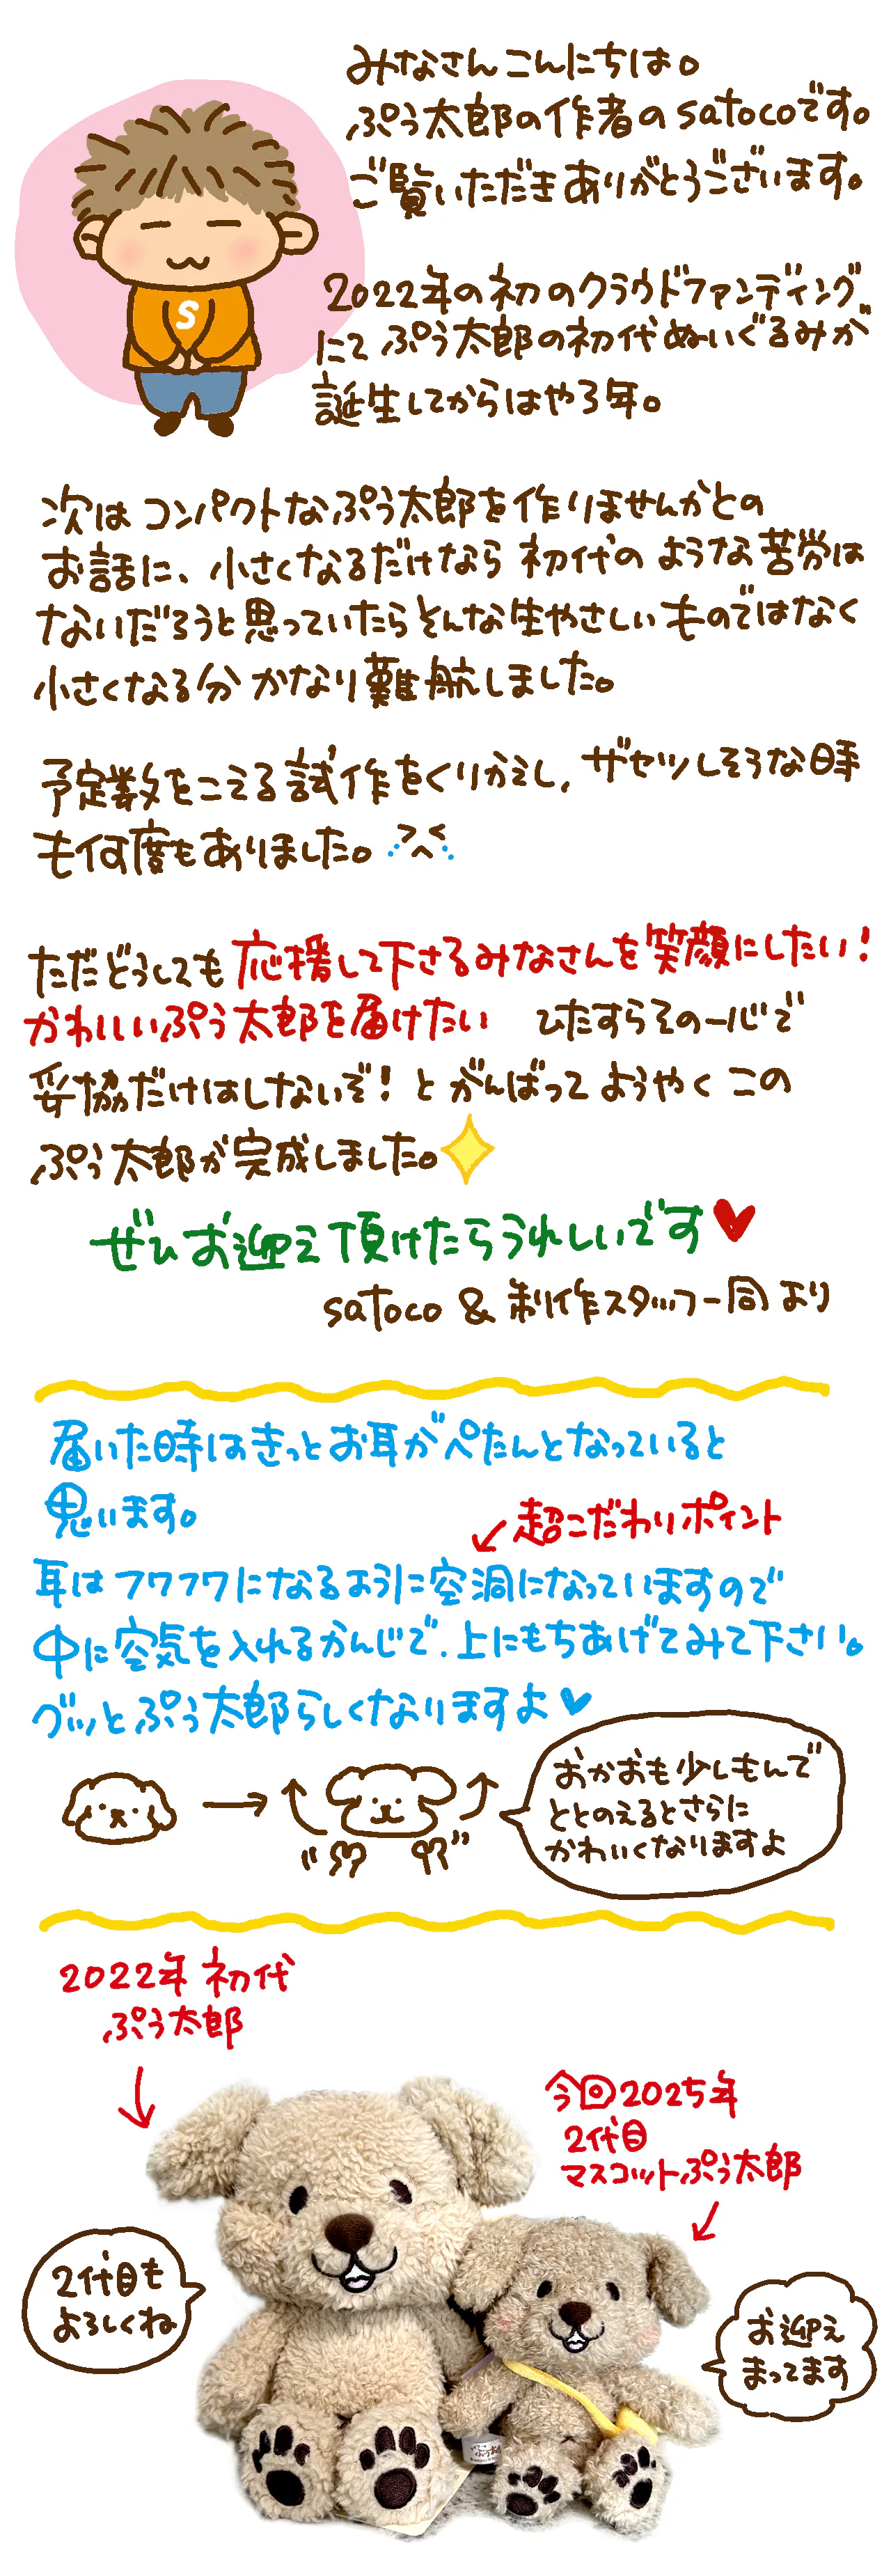 みなさんこんにちは。
ぷう太郎の作者のsatocoです。
ご覧いただきありがとうございます。
S
2022年の初のクラウドファンディング
にてぷう太郎の初代ぬいぐるみが
誕生してからはや3年。
次はコンパクトなぷう太郎を作りませんかとの
お話に、小さくなるだけなら初代のような苦労は
ないだろうと思っていたらそんな生やさしいものではなく
小さくなる分かなり難航しました。
予定数をこえる試作をくりかえし、ザセツしそうな時
も何度もありました。
ただどうしても応援して下さるみなさんを笑顔にしたい!
かわいいぷう太郎を届けたい ひたすらその一心で
妥協だけはしないぞ!とがんばってようやくこの
ぷう太郎が完成しました。
ぜひお迎え頂けたらうれしいです
satoco & 制作スタッフ一同より
届いた時はきっとお耳がぺたんとなっていると
思います。
超こだわりポイント
耳はフワフワになるように空洞になっていますので
中に空気を入れるかんじで、上にもちあげてみて下さい。
グッとぷう太郎らしくなりますよ
おかおも少しもんで
ととのえるとさらに
かわいくなりますよ
2022年初代
ぷう太郎
今回2025年
2代目
マスコットぷう太郎
2代目も
よろしくね
お迎え
まってます